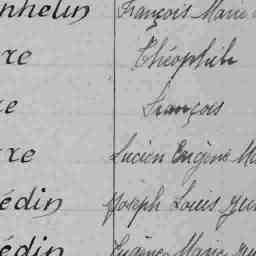 nhelin François Marie
re Théophile
e François
re Lucien Eugène Ma
édin Joseph Louis
édin Eugène Marie